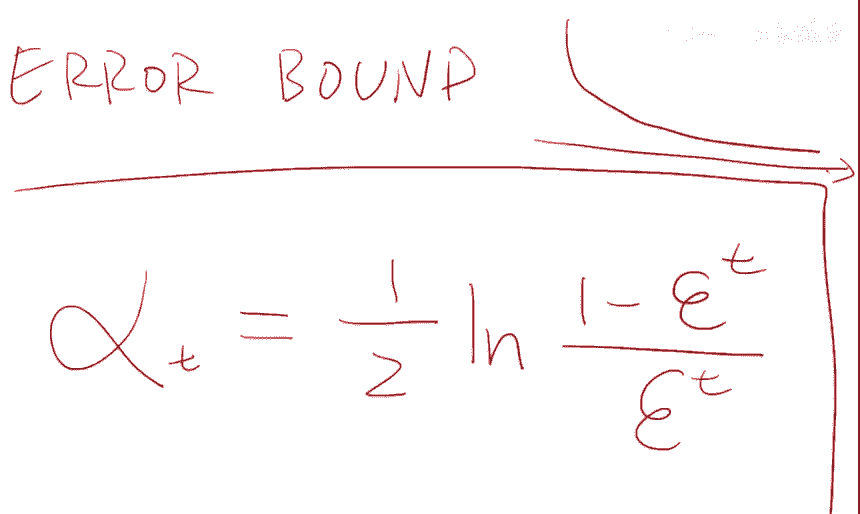 ERROR BOUND
α_t = 1/2 ln (1 - ε^t)/ε^t